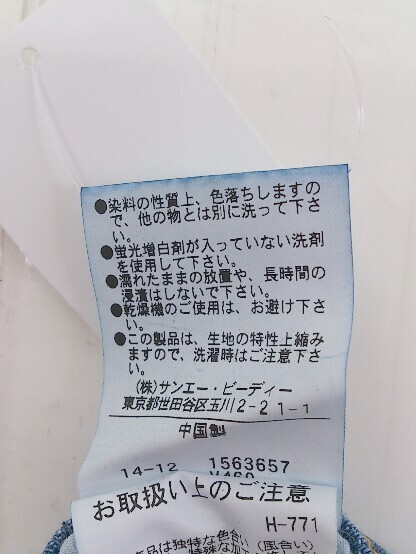 ●染料の性質上、色落ちしますの
で、他の物とは別に洗って下さ
い。
●蛍光増白剤が入っていない洗剤
を使用して下さい。
●濡れたままの放置や、長時間の
浸漬はしないで下さい。
●乾燥機のご使用は、お避け下さ
い。
●この製品は、生地の特性上縮み
ますので、洗濯時はご注意下さ
い。
(株)サンエー・ビーディー
東京都世田谷区玉川2-21-1
中国製
14-12 1563657
お取扱い上のご注意
H-771
製品は独特な色合い(風合い)